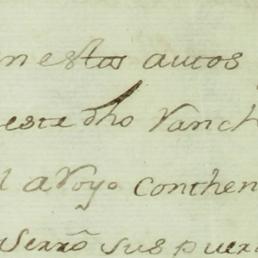 n estos autos
este dho ranch
l aroyo conthen
serrō sus puer